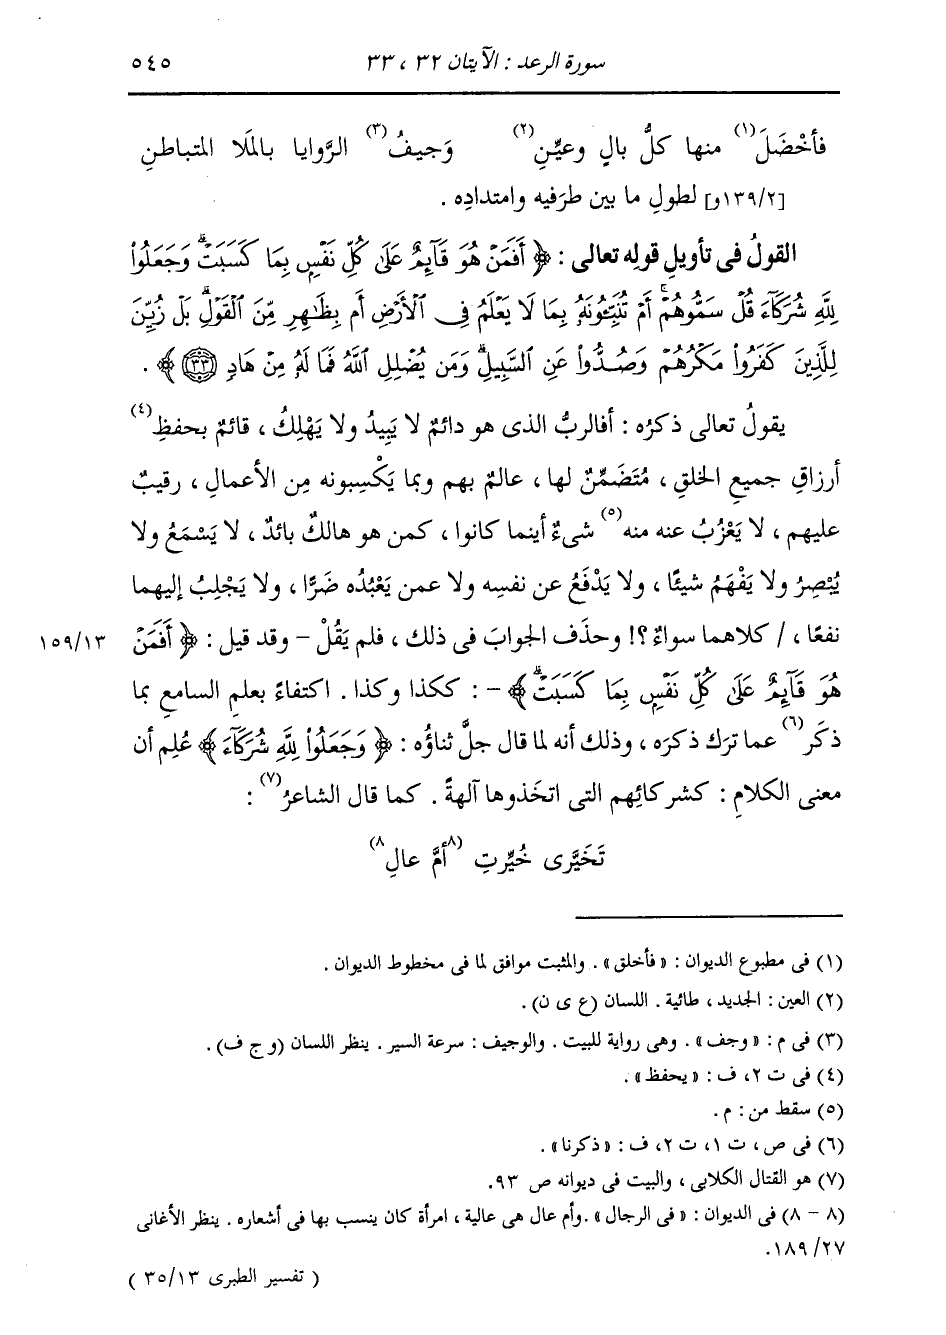 سورة الرعد : الآيتان ٣٢ ، ٣٣
٥٤٥
فأخْضَلَ(١) منها كلُّ بالٍ وعيِّنٍ(٢) وَجيفُ(٣) الرَّوايا بالمَلَا المتباطنِ
[١٣٩/٢و] لطولِ ما بين طرَفيه وامتدادِه .
القولُ فى تأويلِ قولِه تعالى : ﴿ أَفَمَنْ هُوَ قَآئِمٌ عَلَىٰ كُلِّ نَفْسٍۭ بِمَا كَسَبَتْۗ وَجَعَلُوا۟
لِلَّهِ شُرَكَآءَ قُلْ سَمُّوهُمْۚ أَمْ تُنَبِّـُٔونَهُۥ بِمَا لَا يَعْلَمُ فِى ٱلْأَرْضِ أَم بِظَـٰهِرٍ مِّنَ ٱلْقَوْلِۗ بَلْ زُيِّنَ
لِلَّذِينَ كَفَرُوا۟ مَكْرُهُمْ وَصُدُّوا۟ عَنِ ٱلسَّبِيلِۗ وَمَن يُضْلِلِ ٱللَّهُ فَمَا لَهُۥ مِنْ هَادٍ ﴿٣٣﴾ ﴾ .
يقولُ تعالى ذكرُه : أفالربُّ الذى هو دائمٌ لا يَبِيدُ ولا يَهْلِكُ ، قائمٌ بحفظِ(٤)
أرزاقِ جميعِ الخلقِ ، مُتَضَمِّنٌ لها ، عالمٌ بهم وبما يَكْسِبونه مِن الأعمالِ ، رقيبٌ
عليهم ، لا يَعْزُبُ عنه منه(٥) شىءٌ أينما كانوا ، كمن هو هالكٌ بائدٌ ، لا يَسْمَعُ ولا
يُبْصِرُ ولا يَفْهَمُ شيئًا ، ولا يَدْفَعُ عن نفسِه ولا عمن يَعْبُدُه ضَرًّا ، ولا يَجْلِبُ إليهما
نفعًا ، / كلاهما سواءٌ ؟! وحذَف الجوابَ فى ذلك ، فلم يَقُلْ – وقد قيل : ﴿ أَفَمَنْ
١٥٩/١٣
هُوَ قَآئِمٌ عَلَىٰ كُلِّ نَفْسٍۭ بِمَا كَسَبَتْۗ ﴾ – : ككذا وكذا . اكتفاءً بعلمِ السامعِ بما
ذكَر(٦) عما ترَك ذكرَه ، وذلك أنه لما قال جلَّ ثناؤُه : ﴿ وَجَعَلُوا۟ لِلَّهِ شُرَكَآءَ ﴾ عُلِم أن
معنى الكلامِ : كشركائِهم التى اتخَذوها آلهةً . كما قال الشاعرُ(٧) :
تَخَيَّرى خُيِّرتِ (٨أمَّ عالِ٨)
(١) فى مطبوع الديوان : « فأخلق » . والمثبت موافق لما فى مخطوط الديوان .
(٢) العين : الجديد ، طائية . اللسان (ع ى ن) .
(٣) فى م : « وجف » . وهى رواية للبيت . والوجيف : سرعة السير . ينظر اللسان (و ج ف) .
(٤) فى ت ٢، ف : « يحفظ » .
(٥) سقط من : م .
(٦) فى ص ، ت ١، ت ٢، ف : « ذكرنا » .
(٧) هو القتال الكلابى ، والبيت فى ديوانه ص ٩٣.
(٨ – ٨) فى الديوان : « فى الرجال » .وأم عال هى عالية ، امرأة كان ينسب بها فى أشعاره . ينظر الأغانى
١٨٩/٢٧.
( تفسير الطبرى ٣٥/١٣ )